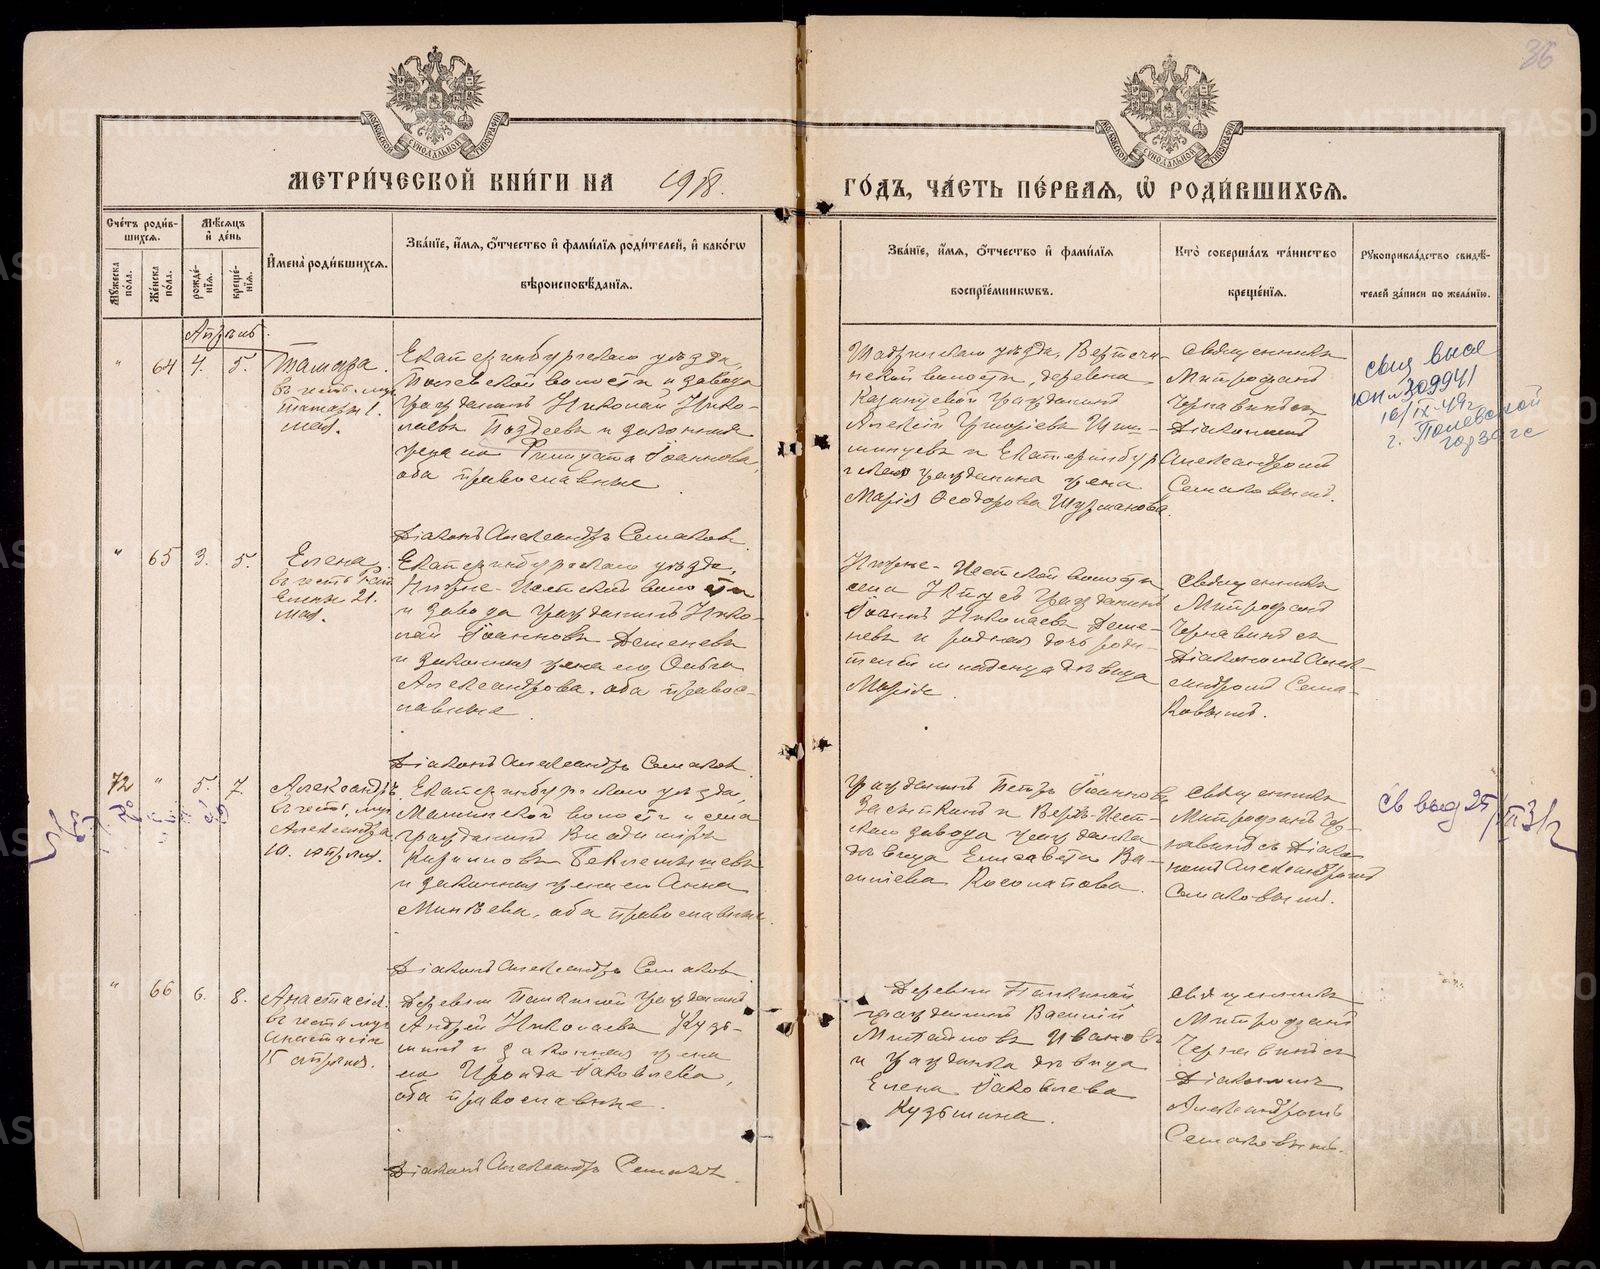 36
МЕТРИ́ЧЕСКОЙ КНИ́ГИ НА 1918.
ГО́ДЪ, ЧА́СТЬ ПЕ́РВАЯ, Ѡ РОДИ́ВШИХСЯ.
Сче́тъ роди́в-
шихся.
Мꙋжеска пола.
Же́нска пола.
Мѣ́сяцъ
и҆ де́нь
рожде́-
нїѧ.
креще́-
нїѧ.
И҆мена̀ роди́вшихся.
Зва́нїе, и҆́мя, ѻ҆́тчество и҆ фами́лїя роди́телей, и҆ како́гѡ
вѣроисповѣ́данїя.
Зва́нїе, и҆́мя, ѻ҆́тчество и҆ фами́лїя
воспрїе́мникѡвъ.
Кто̀ соверша́лъ та́инство
креще́нїя.
Рꙋкоприкла́дство свидѣ́-
телей за́писи по жела́нїю.
Апрѣль.
" 64 4. 5.
Тамара.
въ честь му
Тамары 1.
мая.
Екатеринбургскаго уѣзда,
Полевской волости и завода
гражданинъ Николай Нико-
лаевъ Поздеевъ и законная
жена его Фиагуста Іоаннова,
оба православные
Діаконъ Александръ Семаковъ.
Шадринскаго уѣзда, Вертеч-
ской волости, деревни
Казанцевой гражданинъ
Алексій Григоріевъ
и Екатеринбур
гскаго гражданина жена
Марія Ѳеодорова Шурманова.
Священникъ
Митрофанъ
Чернавинъ съ
Діакономъ
Александромъ
Семаковымъ.
свид выд
ЮН № 309941
16/IX-49г
г. Полевской
горзагс
" 65 3. 5.
Елена
въ честь Рав
Елены 21.
мая.
Екатеринбургскаго уѣзда,
Нижне-Исетской волости
и завода гражданинъ Нико-
лай Іоанновъ Деменевъ
и законная жена его Ольга
Александрова, оба правос-
лавные.
Діаконъ Александръ Семаковъ
Нижне-Исетской волости
села гражданинъ
Іоаннъ Николаевъ Деме-
невъ и родная дочь роди-
телей младенца дѣвица
Марія.
Священникъ
Митрофанъ
Чернавинъ съ
Діакономъ Алек-
сандромъ Сема-
ковымъ.
72 " 5. 7.
Александръ.
въ честь муч
Александра
10. апрѣля.
Екатеринбургскаго уѣзда,
Маминской волости и села
гражданинъ Владиміръ
Кирилловъ Беклемышевъ
и законная жена его Анна
Минѣева, оба православные.
Діаконъ Александръ Семаковъ
Гражданинъ Петръ Іоанновъ
Засыпкинъ и Верхъ-Исет-
скаго завода гражданка
дѣвица Елисавета Ва-
сильева Косолапова.
Священникъ
Митрофанъ Чер-
навинъ съ Діако-
номъ Александромъ
Семаковымъ.
Св выд 25/
" 66 6. 8.
Анастасія.
въ честь муч
Анастасіи
15 апрѣля.
Деревни Палкиной гражданинъ
Андрей Николаевъ Кузь-
минъ и законная жена
его Ираида Іаковлева,
оба православные.
Діаконъ Александръ Семаковъ.
Деревни Палкиной
гражданинъ Василій
Михайловъ Ивановъ
и гражданка дѣвица
Елена Іаковлева
Кузьмина.
Священникъ
Митрофанъ
Чернавинъ съ
Діакономъ
Александромъ
Семаковымъ.